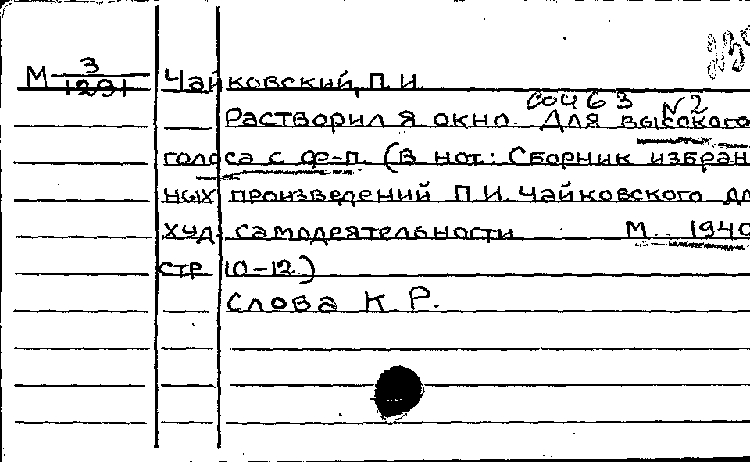 М 3/1291 Чайковский, П.И.
соч 63 №2
Растворил я окно. Для высокого
голоса с ф-п. (В нот: Сборник избран
ных произведений П.И. Чайковского дл
худ. самодеятельности М. 1940
стр 10-12)
Слова К. Р.